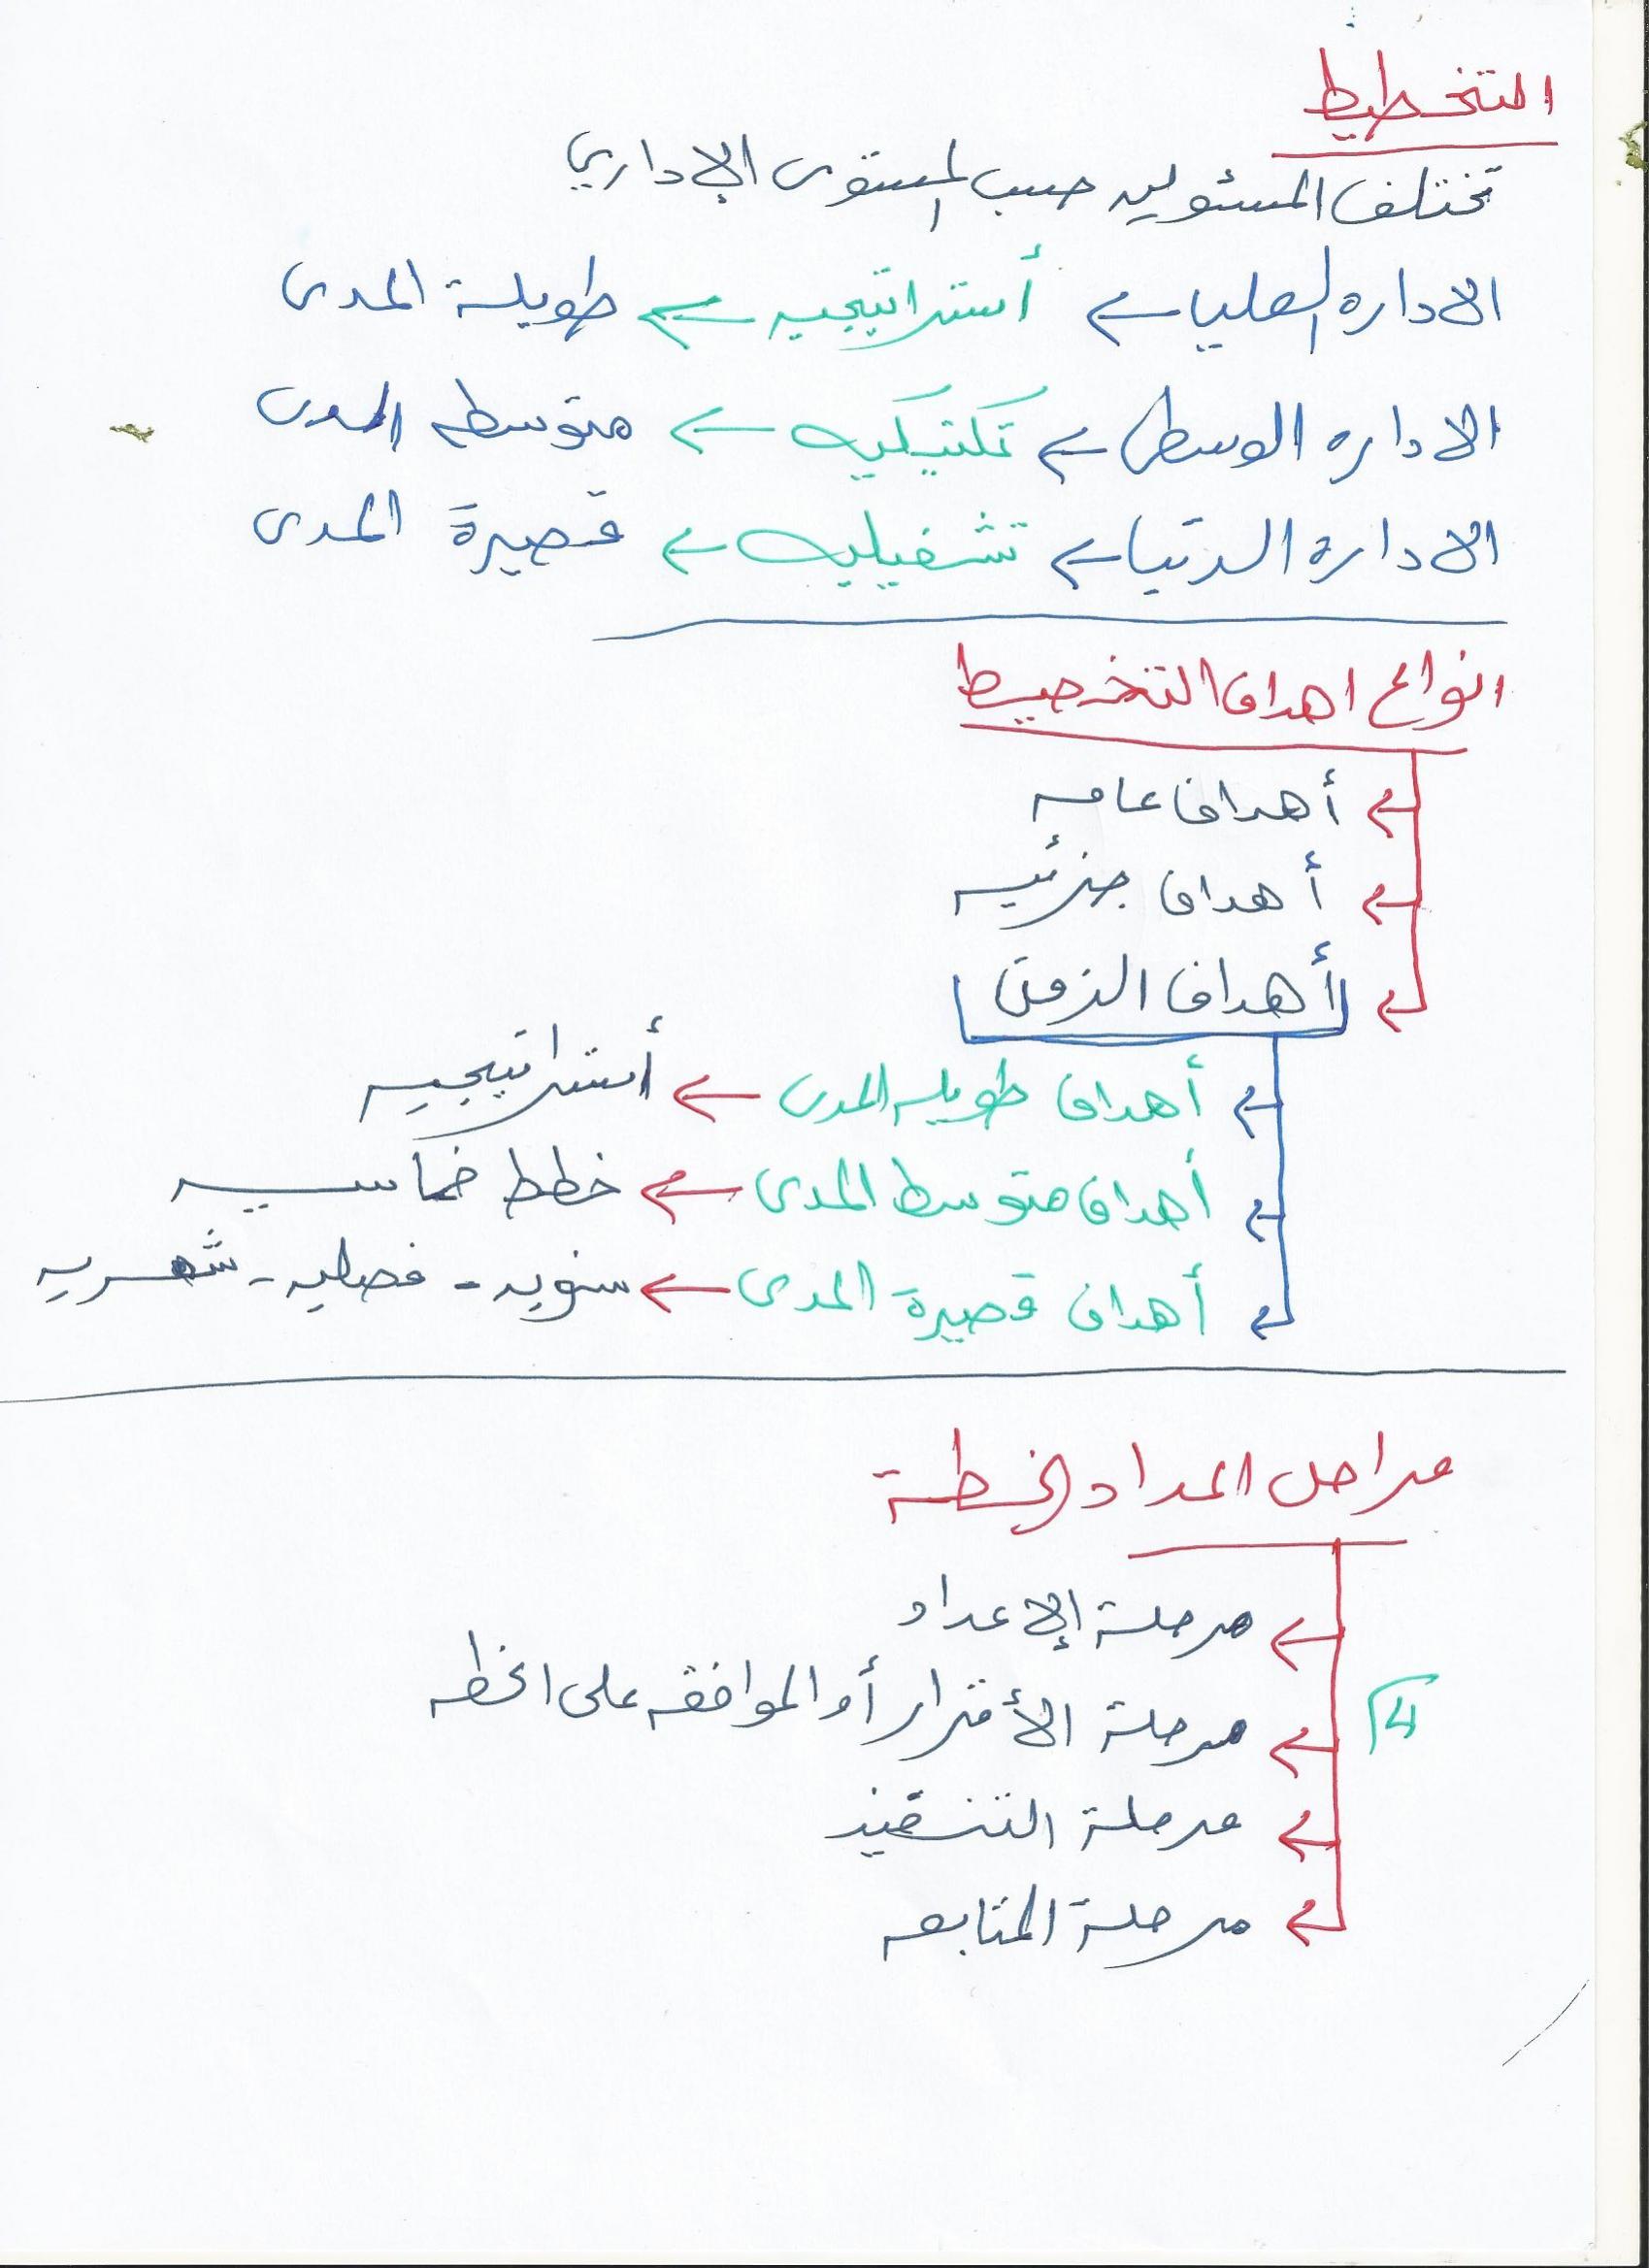 التخطيط
تختلف المسئولين حسب المستوى الإداري
الاداره العليا ← أستراتيجيه ← طويلة المدى
الاداره الوسطى ← تكتيكيه ← متوسطه المدى
الادارة الدنيا ← تشغيليه ← قصيرة المدى
انواع اهداف التخطيط
← أهداف عامه
← أهداف جزئيه
← أهداف الزمن
← أهداف طويله المدى ← أستراتيجيه
← أهداف متوسط المدى ← خطط خماسيه
← أهداف قصيرة المدى ← سنويه - فصليه - شهريه
مراحل اعداد الخطة
← مرحلة الإعداد
4
← مرحلة الأقرار أو الموافقه على الخطه
← مرحلة التنفيذ
← مرحلة المتابعه